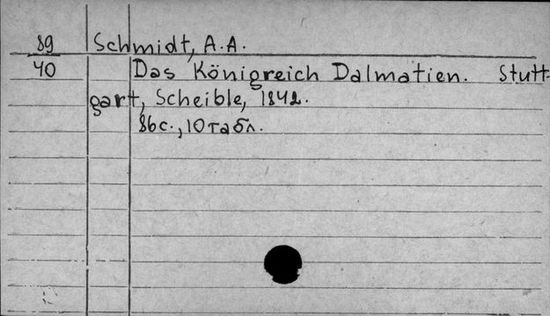 89 Schmidt, A.A.
40 Das Königreich Dalmatien. Stutt-
gart, Scheible, 1842.
86с., 10 табл.